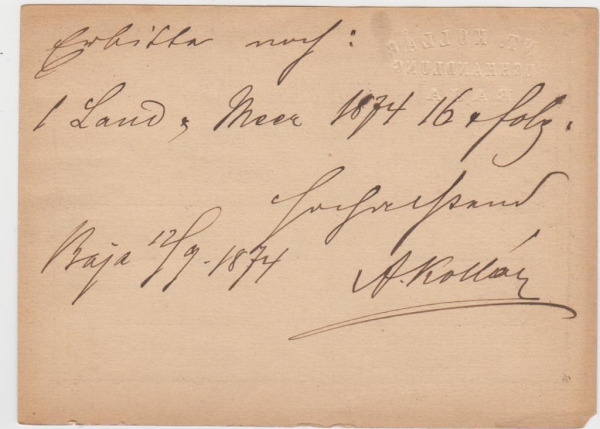 Erbitte noch:
1 Land & Meer 1874 16 & folg.
Hochachtend
Baja 12/9. 1874
A. Kollár
ANT. KOLLÁR
BUCHHANDLUNG
BAJA